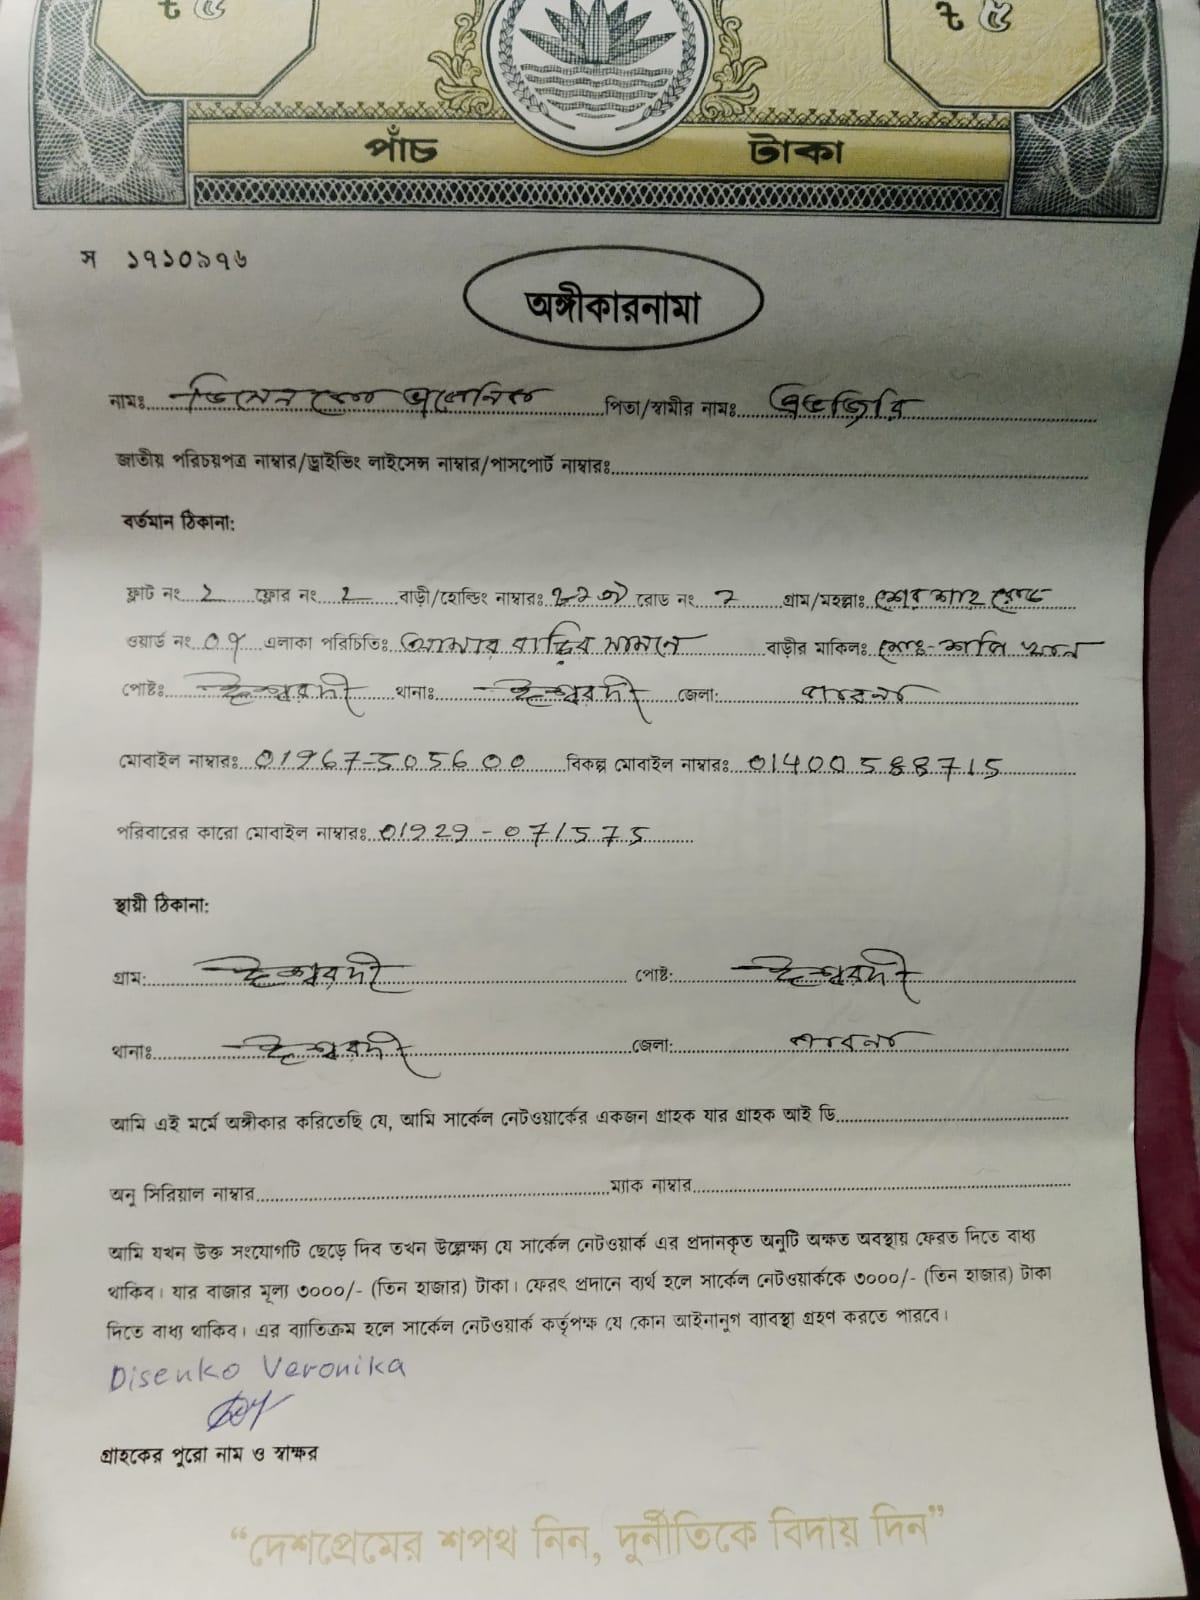 ৳ ৫ ৳ ৫
পাঁচ টাকা
স ১৭১০৯৭৬
অঙ্গীকারনামা
নামঃ ডিসেনকো ভেরোনিকা পিতা/স্বামীর নামঃ
জাতীয় পরিচয়পত্র নাম্বার/ড্রাইভিং লাইসেন্স নাম্বার/পাসপোর্ট নাম্বারঃ
বর্তমান ঠিকানা:
ফ্লাট নং ২ ফ্লোর নং ২ বাড়ী/হোল্ডিং নাম্বারঃ রোড নং গ্রাম/মহল্লাঃ শের শাহ রোড
ওয়ার্ড নং ০৭ এলাকা পরিচিতিঃ আমার বাড়ির সামনে বাড়ীর মাকিলঃ মোঃ-শফি খান
পোষ্টঃ ঈশ্বরদী থানাঃ ঈশ্বরদী জেলা: পাবনা
মোবাইল নাম্বারঃ 01967-505600 বিকল্প মোবাইল নাম্বারঃ 01400588715
পরিবারের কারো মোবাইল নাম্বারঃ 01929-071575
স্থায়ী ঠিকানা:
গ্রাম: ঈশ্বরদী পোষ্ট: ঈশ্বরদী
থানাঃ ঈশ্বরদী জেলা: পাবনা
আমি এই মর্মে অঙ্গীকার করিতেছি যে, আমি সার্কেল নেটওয়ার্কের একজন গ্রাহক যার গ্রাহক আই ডি
অনু সিরিয়াল নাম্বার ম্যাক নাম্বার
আমি যখন উক্ত সংযোগটি ছেড়ে দিব তখন উল্লেক্ষ্য যে সার্কেল নেটওয়ার্ক এর প্রদানকৃত অনুটি অক্ষত অবস্থায় ফেরত দিতে বাধ্য
থাকিব। যার বাজার মূল্য ৩০০০/- (তিন হাজার) টাকা। ফেরৎ প্রদানে ব্যর্থ হলে সার্কেল নেটওয়ার্ককে ৩০০০/- (তিন হাজার) টাকা
দিতে বাধ্য থাকিব। এর ব্যাতিক্রম হলে সার্কেল নেটওয়ার্ক কর্তৃপক্ষ যে কোন আইনানুগ ব্যাবস্থা গ্রহণ করতে পারবে।
Disenko Veronika
গ্রাহকের পুরো নাম ও স্বাক্ষর
“দেশপ্রেমের শপথ নিন, দুর্নীতিকে বিদায় দিন”